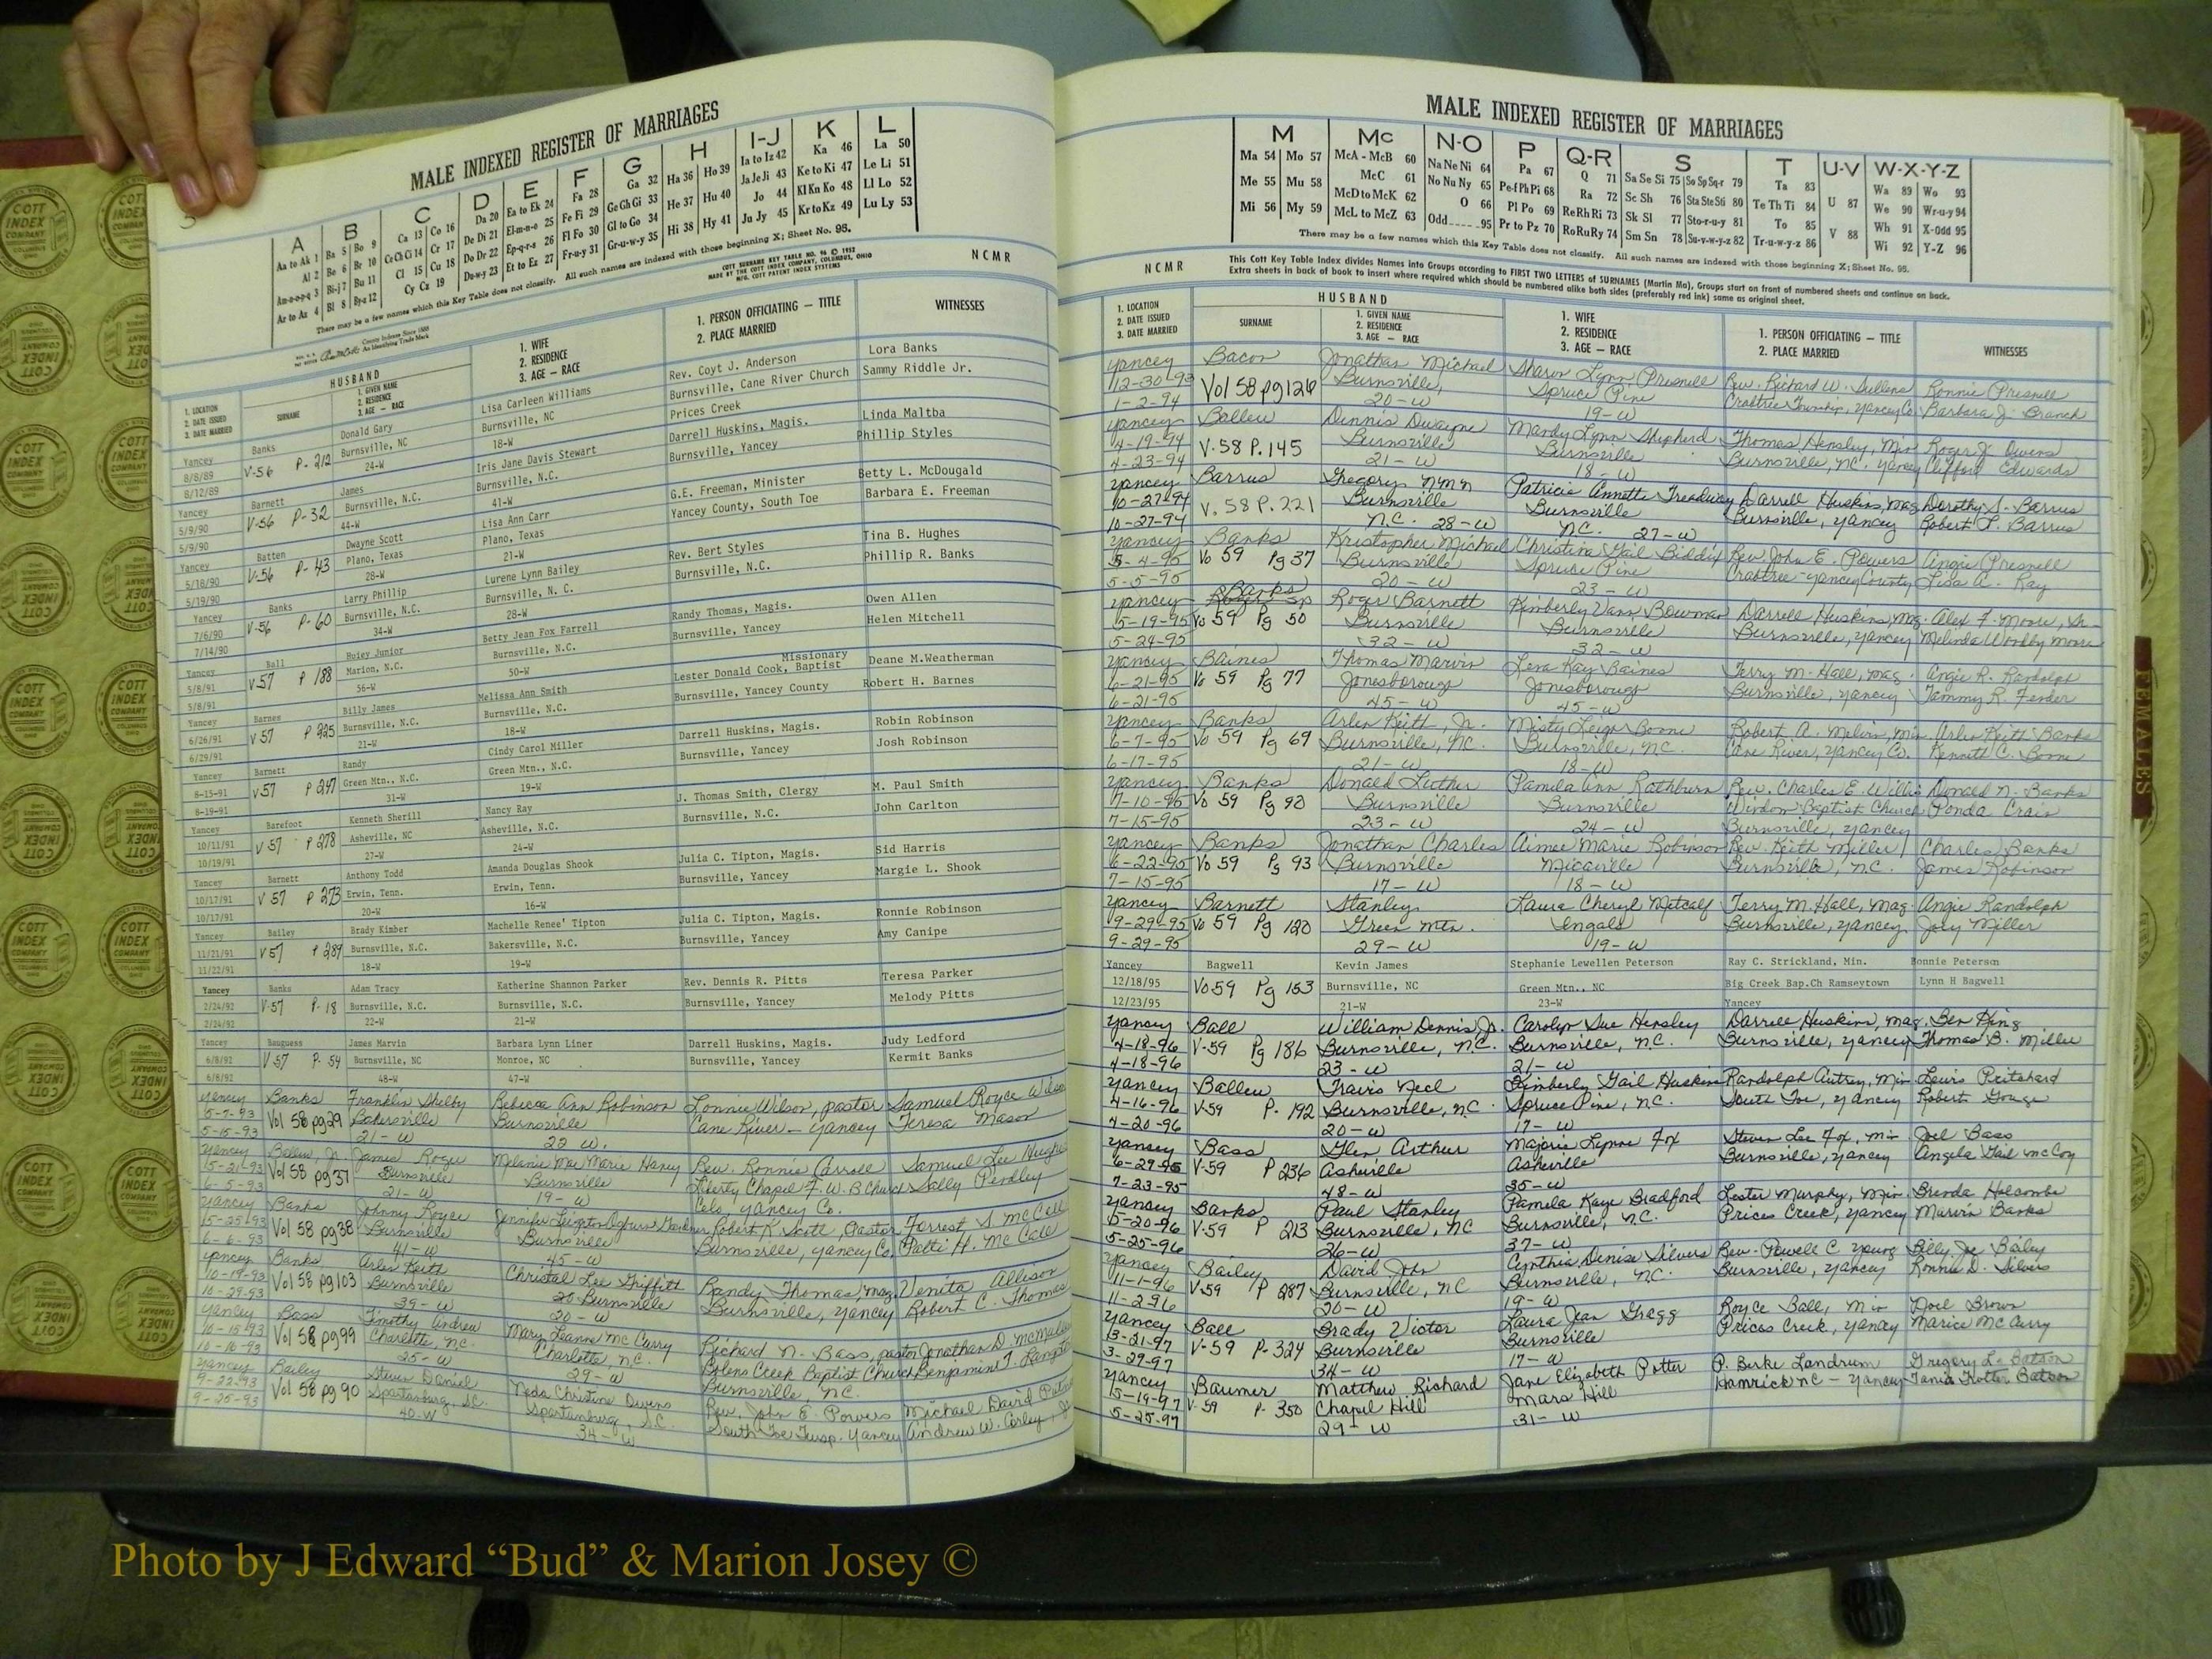 MALE INDEXED REGISTER OF MARRIAGES
A B C D E F G H I-J K L
Aa to Ak 1 Ba 5 Bo 9 Ca 13 Co 16 Da 20 Ea to Ek 24 Fa 28 Ga 32 Ha 36 Ho 39 Ia to Iz 42 Ka 46 La 50
Al 2 Be 6 Br 10 Ce Ch Ci 14 Cr 17 De Di 21 El-m-n-o 25 Fe Fi 29 Ge Gh Gi 33 He 37 Hu 40 Ja Je Ji 43 Ke to Ki 47 Le Li 51
Am-n-o-p-q 3 Bi-j 7 Bu 11 Cl 15 Cu 18 Do Dr 22 Ep-q-r-s 26 Fl Fo 30 Gl to Go 34 Hi 38 Hy 41 Jo 44 Kl Kn Ko 48 Ll Lo 52
Ar to Az 4 Bl 8 By-z 12 Cy Cz 19 Du-w-y 23 Et to Ez 27 Fr-u-y 31 Gr-u-w-y 35 Ju Jy 45 Kr to Kz 49 Lu Ly 53
There may be a few names which this Key Table does not classify. All such names are indexed with those beginning X; Sheet No. 95.
COTT SURNAME KEY TABLE NO. 96 © 1952
MADE BY THE COTT INDEX COMPANY, COLUMBUS, OHIO
MFG. COTT PATENT INDEX SYSTEMS
NCMR
County Indexes Since 1888
An Identifying Trade Mark
HUSBAND
1. LOCATION
2. DATE ISSUED
3. DATE MARRIED
SURNAME
1. GIVEN NAME
2. RESIDENCE
3. AGE — RACE
1. WIFE
2. RESIDENCE
3. AGE — RACE
1. PERSON OFFICIATING — TITLE
2. PLACE MARRIED
WITNESSES
Yancey Banks Donald Gary Lisa Carleen Williams Rev. Coyt J. Anderson Lora Banks
8/8/89 V-56 P-212 Burnsville, NC Burnsville, NC Burnsville, Cane River Church Sammy Riddle Jr.
8/12/89 24-W 18-W Prices Creek
Yancey Barnett James Iris Jane Davis Stewart Darrell Huskins, Magis. Linda Maltba
5/9/90 V-56 P-32 Burnsville, N.C. Burnsville, N.C. Burnsville, Yancey Phillip Styles
5/9/90 44-W 41-W
Yancey Batten Dwayne Scott Lisa Ann Carr G.E. Freeman, Minister Betty L. McDougald
5/18/90 V-56 P-43 Plano, Texas Plano, Texas Yancey County, South Toe Barbara E. Freeman
5/19/90 28-W 21-W
Yancey Banks Larry Phillip Lurene Lynn Bailey Rev. Bert Styles Tina B. Hughes
7/6/90 V-56 P-60 Burnsville, N.C. Burnsville, N. C. Burnsville, N.C. Phillip R. Banks
7/14/90 34-W 28-W
Yancey Ball Huley Junior Betty Jean Fox Farrell Randy Thomas, Magis. Owen Allen
5/8/91 V57 P 188 Marion, N.C. Burnsville, N.C. Burnsville, Yancey Helen Mitchell
5/8/91 56-W 50-W
Yancey Barnes Billy James Melissa Ann Smith Lester Donald Cook, Missionary Baptist Deane M.Weatherman
6/26/91 V57 P 225 Burnsville, N.C. Burnsville, N.C. Burnsville, Yancey County Robert H. Barnes
6/29/91 21-W 18-W
Yancey Barnett Randy Cindy Carol Miller Darrell Huskins, Magis. Robin Robinson
8-15-91 V57 P 247 Green Mtn., N.C. Green Mtn., N.C. Burnsville, Yancey Josh Robinson
8-19-91 31-W 19-W
Yancey Barefoot Kenneth Sherill Nancy Ray J. Thomas Smith, Clergy M. Paul Smith
10/11/91 V57 P 278 Asheville, NC Asheville, N.C. Burnsville, N.C. John Carlton
10/19/91 27-W 24-W
Yancey Barnett Anthony Todd Amanda Douglas Shook Julia C. Tipton, Magis. Sid Harris
10/17/91 V57 P 273 Erwin, Tenn. Erwin, Tenn. Burnsville, Yancey Margie L. Shook
10/17/91 20-W 16-W
Yancey Bailey Brady Kimber Machelle Renee' Tipton Julia C. Tipton, Magis. Ronnie Robinson
11/21/91 V57 P 289 Burnsville, N.C. Bakersville, N.C. Burnsville, Yancey Amy Canipe
11/22/91 18-W 19-W
Yancey Banks Adam Tracy Katherine Shannon Parker Rev. Dennis R. Pitts Teresa Parker
2/24/92 V-57 P-18 Burnsville, N.C. Burnsville, N.C. Burnsville, Yancey Melody Pitts
2/24/92 22-W 21-W
Yancey Bauguess James Marvin Barbara Lynn Liner Darrell Huskins, Magis. Judy Ledford
6/8/92 V57 P. 54 Burnsville, NC Monroe, NC Burnsville, Yancey Kermit Banks
6/8/92 48-W 47-W
Yancey Banks Franklin Shelby Rebecca Ann Robinson Lonnie Wilson, pastor Samuel Royce
5-7-93 Vol 58 pg29 Bakersville Burnsville Cane River - Yancey Teresa Mason
5-15-93 21-W 22 W.
Yancey Ballew, Jr. James Roger Melanie Mae Marie Haney Rev. Ronnie Carroll Samuel Lee Hughes
5-21-93 Vol 58 pg37 Burnsville Burnsville Liberty Chapel F.W.B Church Sally Pendley
6-5-93 21-W 19-W Celo, Yancey Co.
Yancey Banks Johnny Royce Jennifer Gardner, Robert K. Scott, Pastor Forrest S. McCall
5-25-93 Vol 58 pg38 Burnsville Burnsville Burnsville, Yancey Co, Patti H. McCall
6-6-93 41-W 45-W
Yancey Banks, Arlen Keith Christal Lee Griffith Randy Thomas, mag. Venita Allison
10-19-93 Vol 58 pg103 Burnsville 20-Burnsville Burnsville, Yancey Robert C. Thomas
10-29-93 39-W 20-W
Yancey Bass Timothy Andrew Mary Leanne McCurry Richard N. Bass, pastor Jonathan D.
10-15-93 Vol 58 pg99 Charlotte, N.C. Charlotte, N.C. Bolens Creek Baptist Church Benjamin T.
10-16-93 25-W 29-W Burnsville, N.C.
Yancey Bailey Steven Daniel Neda Christine Owens Rev. John E. Powers Michael David
9-22-93 Vol 58 pg 90 Spartanburg, S.C. Spartanburg, S.C. South Toe Twsp. Yancey Andrew W. Corley,
9-25-93 40-W 34-W
MALE INDEXED REGISTER OF MARRIAGES
M Mc N-O P Q-R S T U-V W-X-Y-Z
Ma 54 Mo 57 McA - McB 60 Na Ne Ni 64 Pa 67 Q 71 Sa Se Si 75 So Sp Sq-r 79 Ta 83 Wa 89 Wo 93
Me 55 Mu 58 McC 61 No Nu Ny 65 Pe-f Ph Pi 68 Ra 72 Sc Sh 76 Sta Ste Sti 80 Te Th Ti 84 U 87 We 90 Wr-u-y 94
Mi 56 My 59 McD to McK 62 O 66 Pl Po 69 Re Rh Ri 73 Sk Sl 77 Sto-r-u-y 81 To 85 V 88 Wh 91 X-Odd 95
McL to McZ 63 Odd 95 Pr to Pz 70 Ro Ru Ry 74 Sm Sn 78 Su-v-w-y-z 82 Tr-u-w-y-z 86 Wi 92 Y-Z 96
There may be a few names which this Key Table does not classify. All such names are indexed with those beginning X; Sheet No. 95.
NCMR
This Cott Key Table Index divides Names into Groups according to FIRST TWO LETTERS of SURNAMES (Martin Ma), Groups start on front of numbered sheets and continue on back.
Extra sheets in back of book to insert where required which should be numbered alike both sides (preferably red ink) same as original sheet.
HUSBAND
1. LOCATION
2. DATE ISSUED
3. DATE MARRIED
SURNAME
1. GIVEN NAME
2. RESIDENCE
3. AGE — RACE
1. WIFE
2. RESIDENCE
3. AGE — RACE
1. PERSON OFFICIATING — TITLE
2. PLACE MARRIED
WITNESSES
Yancey Bacon Jonathan Michael Sharon Lynn Presnell Rev. Richard W. Sullens Ronnie Presnell
12-30-93 Vol 58 pg126 Burnsville, Spruce Pine Crabtree Township, Yancey Co. Barbara J. Branch
1-2-94 20-W 19-W
Yancey Ballew Dennis Dwayne Mandy Lynn Shepherd Thomas Hensley, Min Roger J. Owens
4-19-94 V.58 P.145 Burnsville Burnsville Burnsville, NC. Yancey Clifford Edwards
4-23-94 21-W 18-W
Yancey Barrus Gregory NMN Patricia Annette Treadway Darrell Huskins, Mag. Dorothy S. Barrus
10-27-94 V. 58 P. 221 Burnsville Burnsville Burnsville, Yancey Robert L. Barrus
10-27-94 N.C. 28-W N.C. 27-W
Yancey Banks Kristopher Michael Christina Gail Biddix Rev. John E. Powers Angie Presnell
5-4-95 Vo 59 Pg 37 Burnsville Spruce Pine Crabtree-Yancey County Lisa A. Ray
5-5-95 20-W 23-W
Yancey Banks Roger Barnett Kimberly Vann Bowman Darrell Huskins, Mag. Alex F. Moore, Sr.
5-19-95 Vo 59 Pg 50 Burnsville Burnsville Burnsville, Yancey Melinda Woodby Moore
5-24-95 32-W 32-W
Yancey Baines Thomas Marvin Lena Kay Baines Terry M. Hall, Mag. Angie R. Randolph
6-21-95 Vo 59 Pg 77 Jonesborough Jonesborough Burnsville, Yancey Tammy R. Fender
6-21-95 45-W 45-W
Yancey Banks Arlen Keith, Jr. Misty Leigh Boone Robert A. Melvin, Min. Arlen Keith Banks
6-7-95 Vo 59 Pg 69 Burnsville, NC. Burnsville, N.C. Cane River, Yancey Co. Kenneth C. Boone
6-17-95 21-W 18-W
Yancey Banks Donald Luther Pamela Ann Rathburn Rev. Charles E. Willis Donald N. Banks
7-10-95 Vo 59 Pg 92 Burnsville Burnsville Windom Baptist Church Ponda Crain
7-15-95 23-W 24-W Burnsville, Yancey
Yancey Banks Jonathan Charles Aimee Marie Robinson Rev. Keith Miller Charles Banks
6-22-95 Vo 59 Pg 93 Burnsville Micaville Burnsville, N.C. James Robinson
7-15-95 17-W 18-W
Yancey Barnett Stanley Laura Cheryl Metcalf Terry M. Hall, Mag. Angie Randolph
9-29-95 Vo 59 Pg 120 Green Mtn. Ingals Burnsville, Yancey Joey Miller
9-29-95 29-W 19-W
Yancey Bagwell Kevin James Stephanie Lewellen Peterson Ray C. Strickland, Min. Bonnie Peterson
12/18/95 Vo59 Pg 153 Burnsville, NC Green Mtn., NC Big Creek Bap.Ch Ramseytown Lynn H Bagwell
12/23/95 21-W 23-W Yancey
Yancey Ball William Dennis, Jr. Carolyn Sue Hensley Darrell Huskins, Mag. Ben King
4-18-96 V-59 Pg 186 Burnsville, N.C. Burnsville, N.C. Burnsville, Yancey Thomas B. Miller
4-18-96 23-W 21-W
Yancey Ballew Travis Neal Kimberly Gail Huskins Randolph Autrey, Min. Lewis Pritchard
4-16-96 V-59 P. 192 Burnsville, NC. Spruce Pine, N.C. South Toe, Yancey Robert Gouge
4-20-96 20-W 17-W
Yancey Bass Glen Arthur Majorie Lynne Fox Steven Lee Fox, Min Joel Bass
6-27-96 V-59 P 236 Asheville Asheville Burnsville, Yancey Angela Gail McCoy
7-23-95 48-W 35-W
Yancey Banks Paul Stanley Pamela Kaye Bradford Lester Murphy, Min. Brenda Holcombe
5-20-96 V-59 P 213 Burnsville, NC Burnsville, N.C. Prices Creek, Yancey Marvin Banks
5-25-96 26-W 37-W
Yancey Bailey David John Cynthia Denise Silvers Rev. Powell C Young Billy Joe Bailey
11-1-96 V-59 P 287 Burnsville, NC Burnsville, N.C. Burnsville, Yancey Ronnie D. Silvers
11-2-96 20-W 19-W
Yancey Ball Grady Victor Laura Jean Gragg Royce Ball, Min Noel Brown
3-21-97 V-59 P-324 Burnsville Burnsville Prices Creek, Yancey Marice McCurry
3-29-97 34-W 17-W
Yancey Baumer Matthew Richard Jane Elizabeth Potter P. Berke Landrum Gregory L. Batson
5-19-97 V-59 P-350 Chapel Hill Mars Hill Hamrick NC - Yancey Tania Trotter Batson
5-25-97 29-W 31-W
FEMALES
COTT INDEX COMPANY COLUMBUS OHIO
Photo by J Edward “Bud” & Marion Josey ©